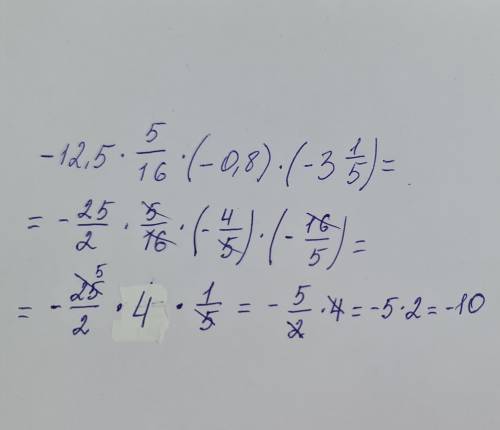 -12,5 · 5/16 · (-0,8) · (-3 1/5) =
= - 25/2 · 5/16 · (- 4/5) · (- 16/5) =
= - 25/2 5 · 4 · 1/5 = - 5/2 · 4 = -5 · 2 = -10